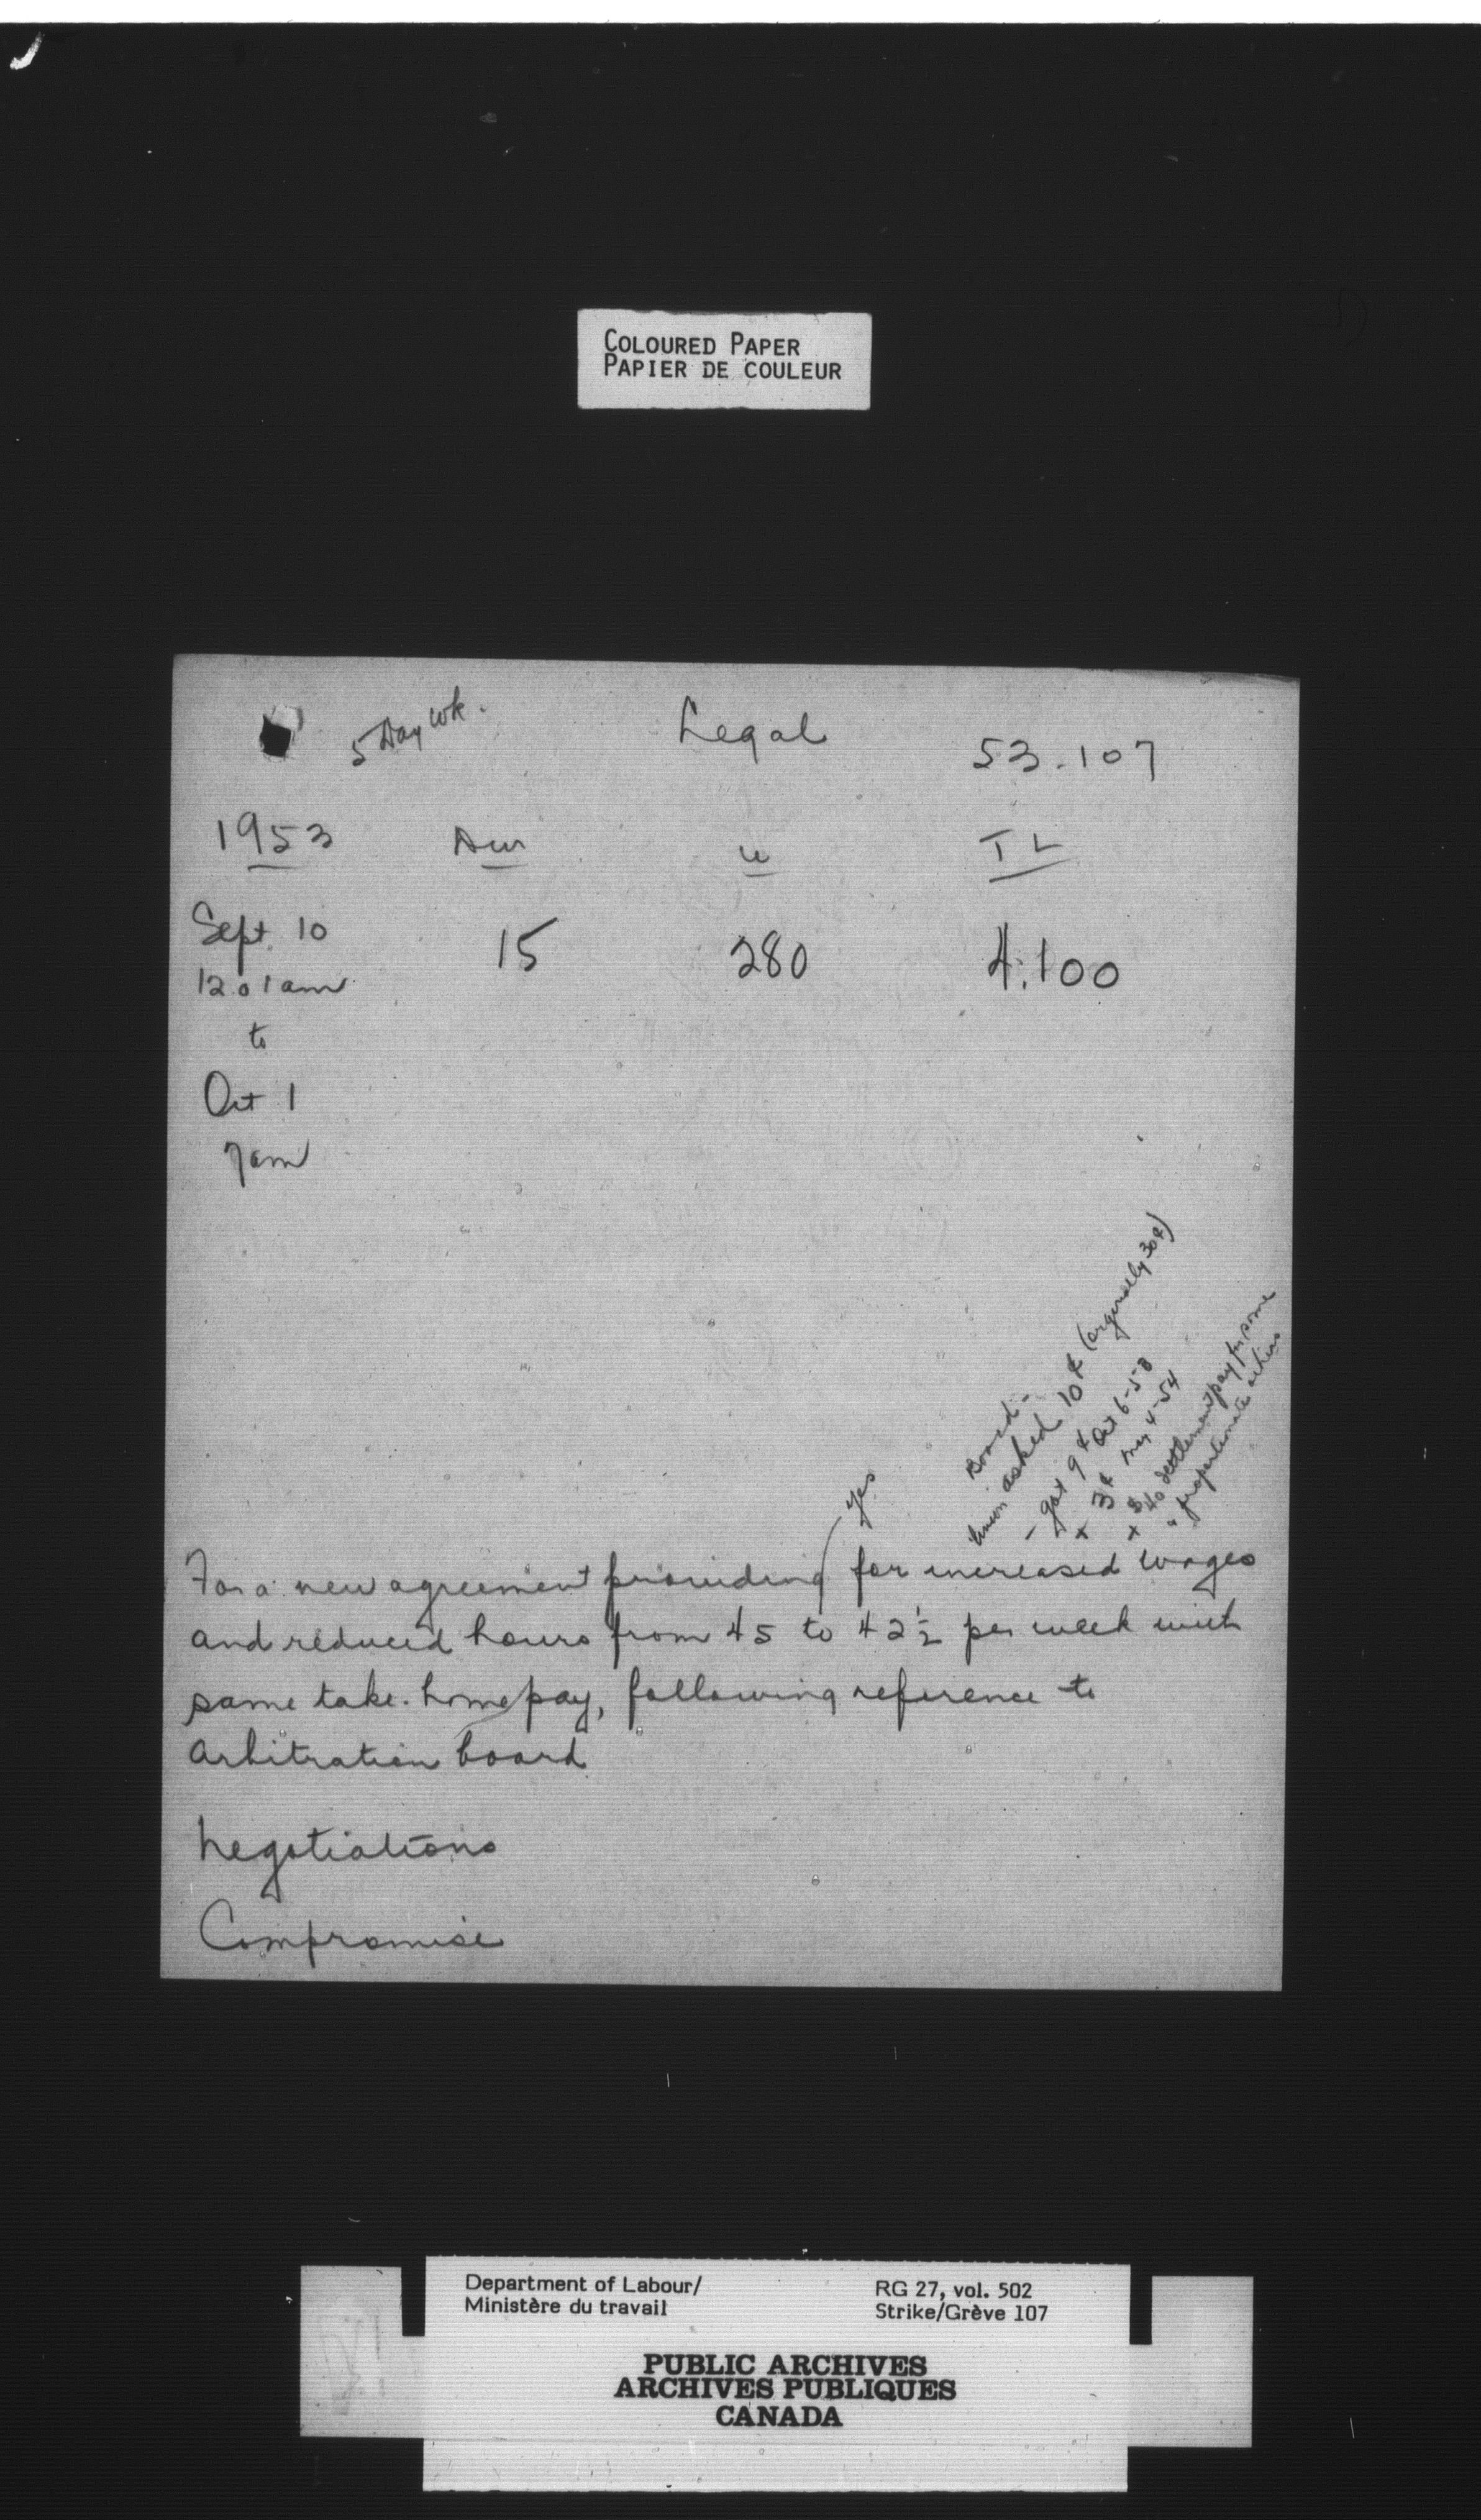 COLOURED PAPER
PAPIER DE COULEUR
5 Day wk.
Legal
53.107
1953
Dur
W
TL
Sept. 10
12.01 am
to
Oct 1
7am
15
280
4,100
Board -
Union asked 10¢ (originally 30¢)
- got 9¢ Oct 6-53
+ 3¢ May 4-54
+ $40 settlement pay for some
" proportionate others
yes
For a new agreement providing for increased wages
and reduced hours from 45 to 42 1/2 per week with
same take-home pay, following reference to
arbitration board
Negotiations
Compromise
Department of Labour/
Ministère du travail
RG 27, vol. 502
Strike/Grève 107
PUBLIC ARCHIVES
ARCHIVES PUBLIQUES
CANADA